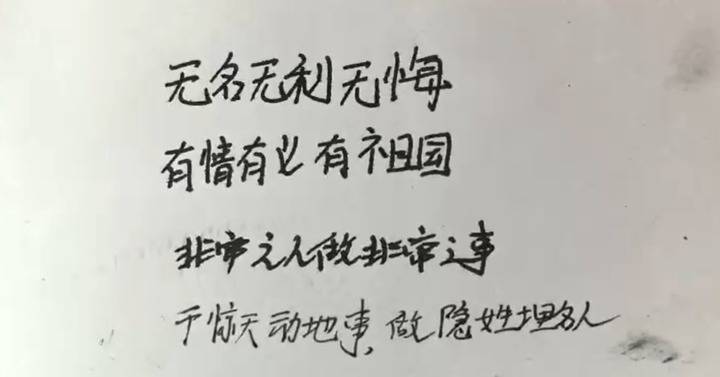 无名无利无悔
有情有义有祖国
非常之人做非常之事
干惊天动地事,做隐姓埋名人